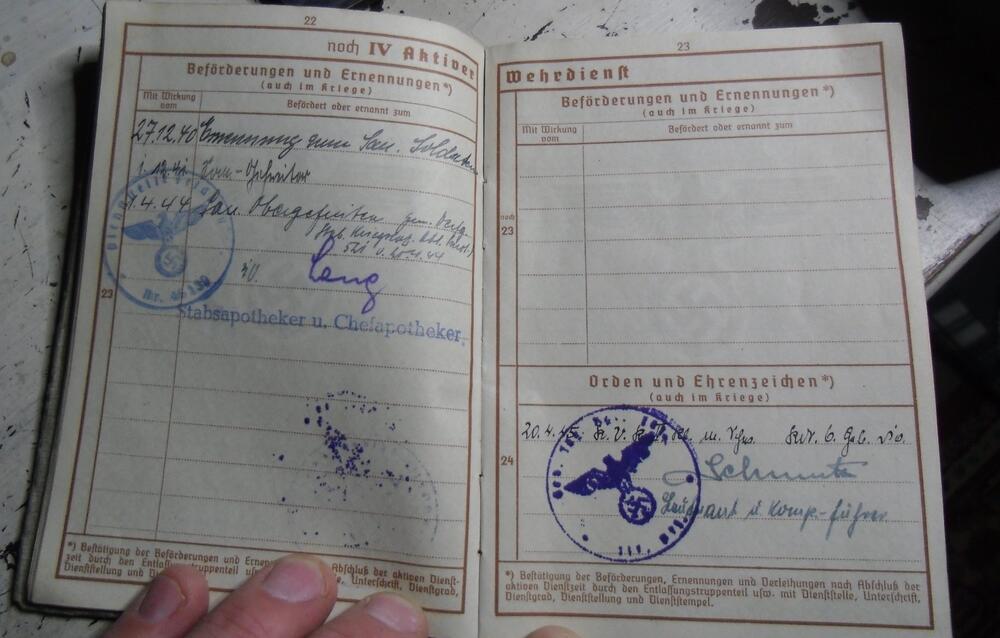 22
noch IV Aktiver
Beförderungen und Ernennungen *)
(auch im Kriege)
Mit Wirkung vom
Befördert oder ernannt zum
27.12.40 Ernennung zum San. Soldaten
1.12.41 San.-Gefreiter
1.4.44 San. Obergefreiten
23
Nr. 46139
Stabsapotheker u. Chefapotheker
*) Bestätigung der Beförderungen und Ernen
Abschluß der aktiven Dienst-
zeit durch den Entlassungstruppenteil usw.
Dienststelle, Unterschrift, Dienstgrad,
Dienststellung und
23
Wehrdienst
Beförderungen und Ernennungen *)
(auch im Kriege)
Mit Wirkung vom
Befördert oder ernannt zum
noch
23
Orden und Ehrenzeichen *)
(auch im Kriege)
20.4.45
24
Schmutz
Leutnant u. Komp.-führer
*) Bestätigung der Beförderungen, Ernennungen und Verleihungen nach Abschluß der
aktiven Dienstzeit durch den Entlassungstruppenteil usw. mit Dienststelle, Unterschrift,
Dienstgrad, Dienststellung und Dienststempel.